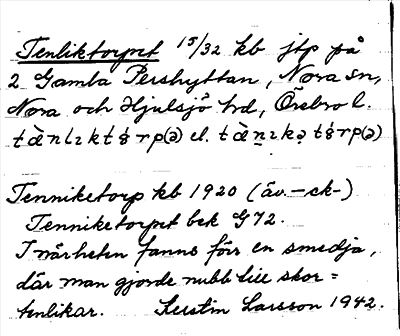 Tenliktorpet 15/32 kb jtp på
2 Gamla Pershyttan, Nora sn,
Nora och Hjulsjö hd, Örebro l.
el.
Tenniketorp kb 1920 (äv. -ck-)
Tenniketorpet bek G72.
I närheten fanns förr en smedja,
där man gjorde nubb till skor=
tenlikar. Kerstin Larsson 1942.